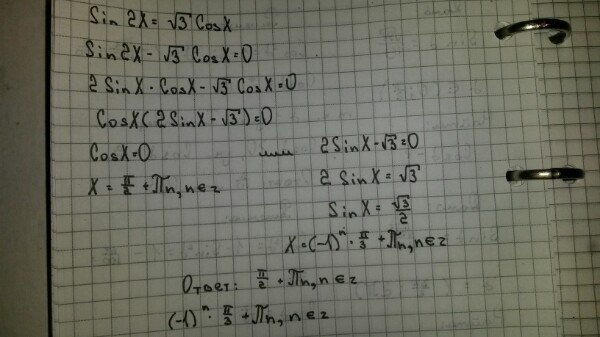 Sin 2X = √3 CosX
Sin 2X - √3 CosX = 0
2 SinX · CosX - √3 CosX = 0
CosX(2SinX - √3) = 0
CosX = 0 или 2SinX - √3 = 0
X = π/2 + πn, n ∈ z 2 SinX = √3
SinX = √3/2
X = (-1)ⁿ · π/3 + πn, n ∈ z
Ответ: π/2 + πn, n ∈ z
(-1)ⁿ · π/3 + πn, n ∈ z